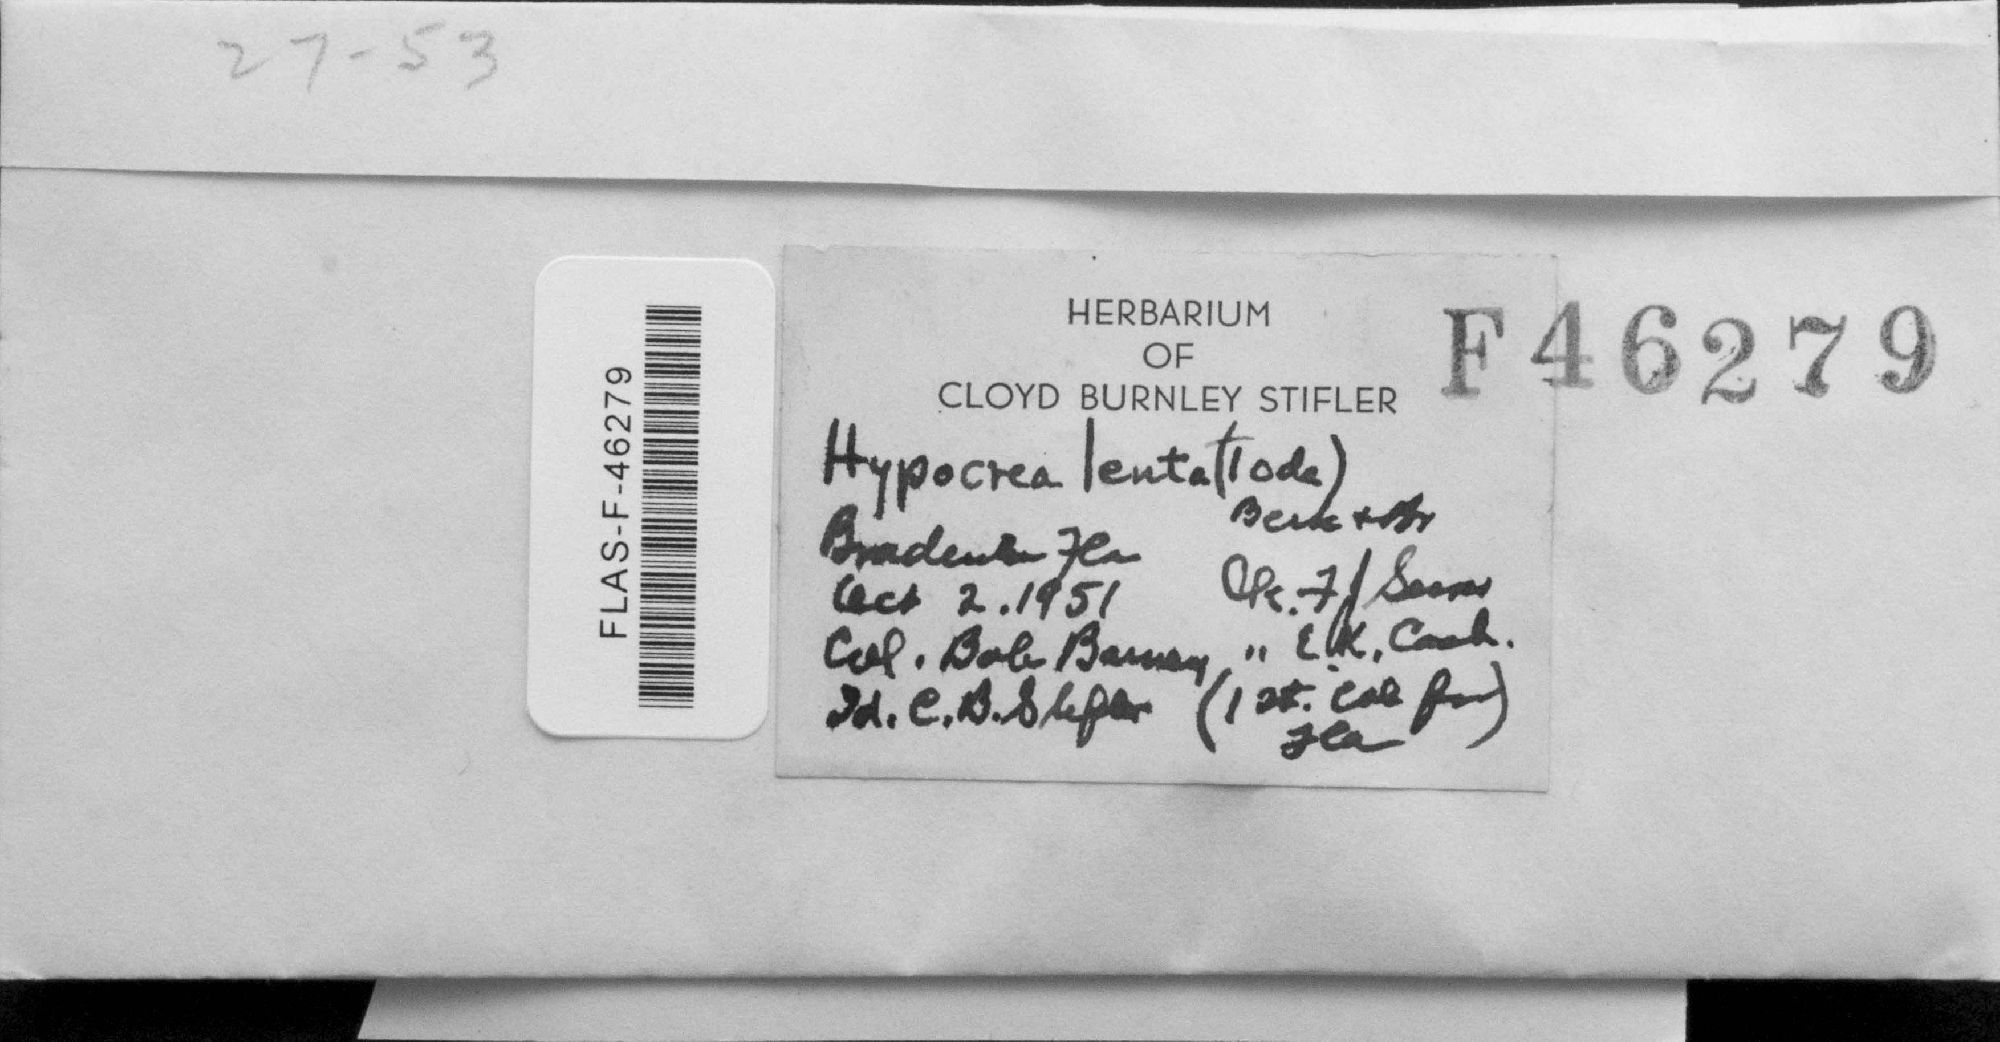 27-53
FLAS-F-46279
HERBARIUM
OF
CLOYD BURNLEY STIFLER
F46279
Hypocrea lenta (Tode)
Berk + Br
Bradenton Fla
Oct 2. 1951
Ck. F J Seaver
Col. Bob Barney
" E.K. Cash.
Id. C. B. Stifler
(1st. Col for
Fla)